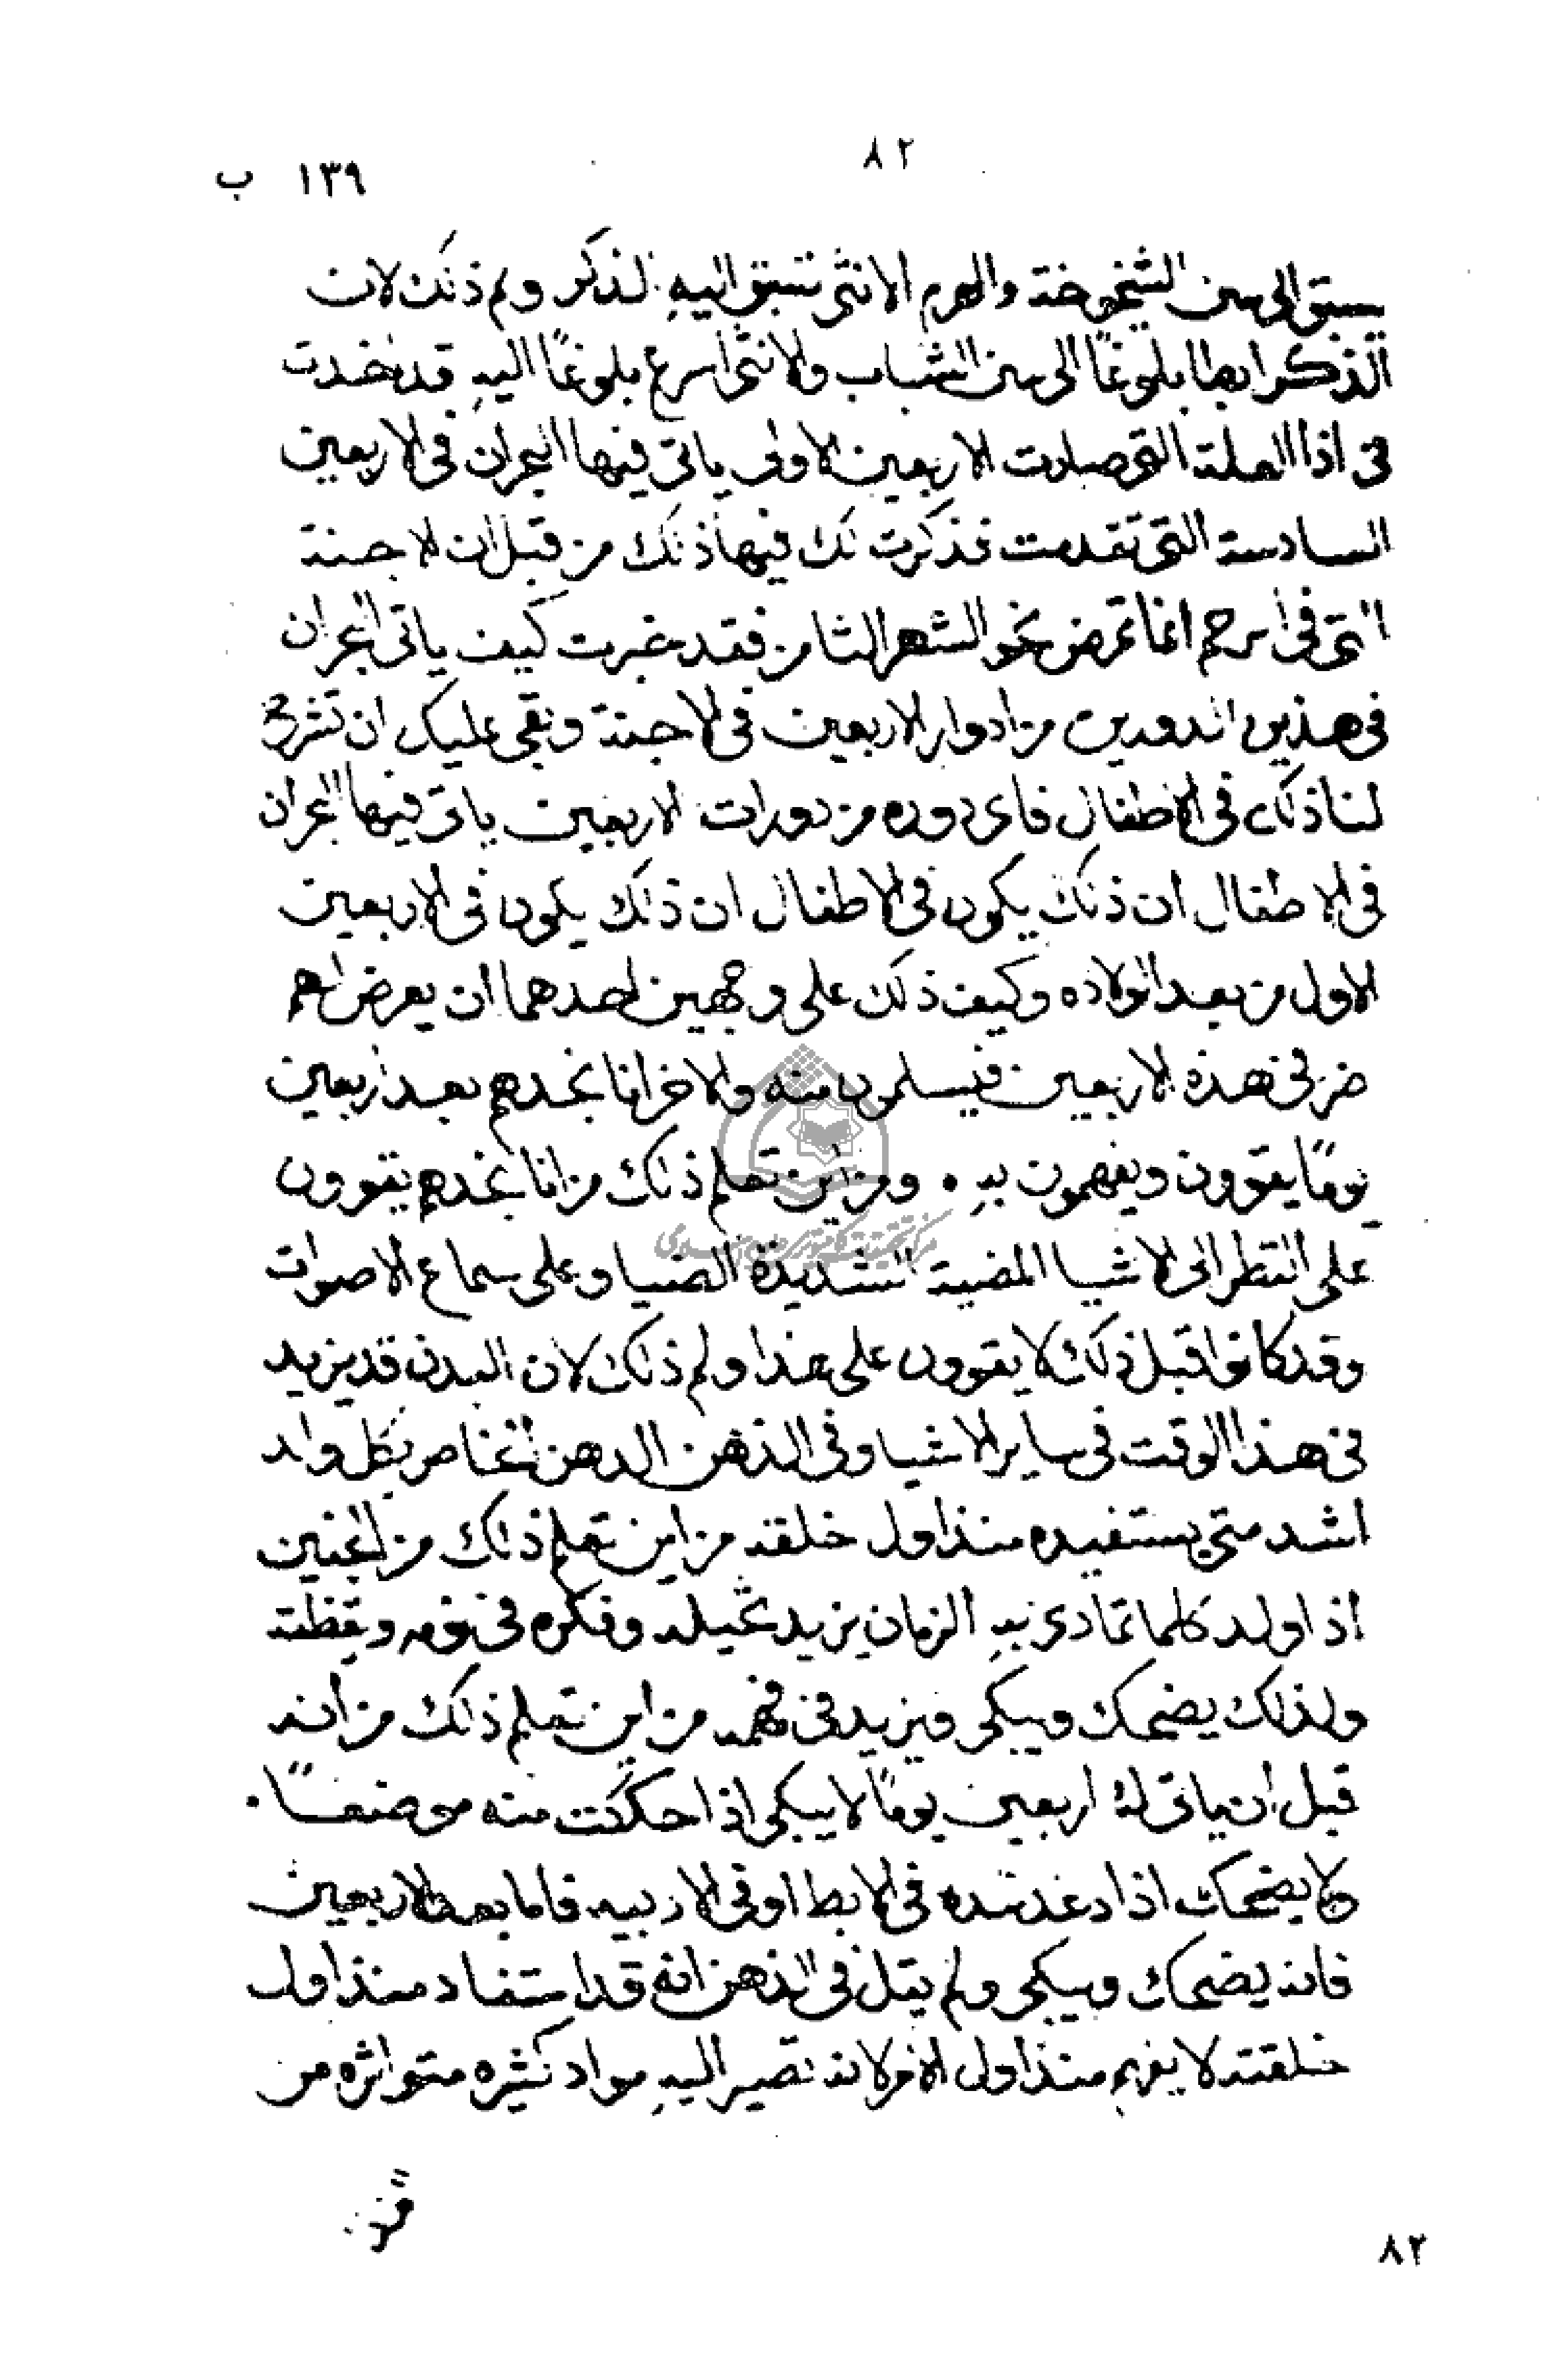 ٨٢
١٣٩ ب
يسبق الى سن الشيخوخة والهرم الانثى تسبق اليه الذكر ولم ذلك لان
الذكر ابطا بلوغًا الى سن الشباب والانثى اسرع بلوغًا اليه قد
فى اذا العلة التى صارت الاربعين الاولى ياتى فيها البحران فى الاربعين
السادسة التى تقدمت فذكرت لك فيها ذلك من قبل ان الاجنة
التى فى الرحم انما تمرض نحو الشهر الثامن فقد خبرت كيف ياتى البحران
فى هذين الدورين من ادوار الاربعين فى الاجنة وبقى عليك ان تشرح
لنا ذلك فى الاطفال فاى دوره من دورات الاربعين ياتى فيها البحران
فى الاطفال ان ذلك يكون فى الاطفال ان ذلك يكون فى الاربعين
الاول من بعد الولاده وكيف ذلك على وجهين احدهما ان يعرض لهم
فى هذه الاربعين فيسلمون منه والاخر انا نجدهم بعد اربعين
يومًا يقوون ويفهمون به ٠ ومن اين تعلم ذلك من انا نجدهم يقوون
على النظر الى الاشيا المضية الشديدة الضيا وعلى سماع الاصوات
وقد كانوا قبل ذلك لا يقوون على هذا ولم ذلك لان البدن قد يزيد
فى هذا الوقت فى ساير الاشيا وفى الذهن الدهن
اشد متى يستفيده منذ اول خلقته من اين تعلم ذلك من الجنين
اذا ولد كلما تمادى به الزمان يزيد تخيله وفكره فى نومه ويقظته
ولذلك يضحك ويبكى ويزيد فى فهمه من اين تعلم ذلك من انه
قبل ان ياتى له اربعين يومًا لا يبكى اذا حككت منه موضعًا ٠
ولا يضحك اذا دغدغته فى الابط او فى الاربيه فاما بعد الاربعين
فانه يضحك ويبكى ولم يقل فى الذهن انه قد استفاد منذ اول
خلقته لا منذ اول الامر لانه تصير اليه مواد كثيره متواتره من
٨٢